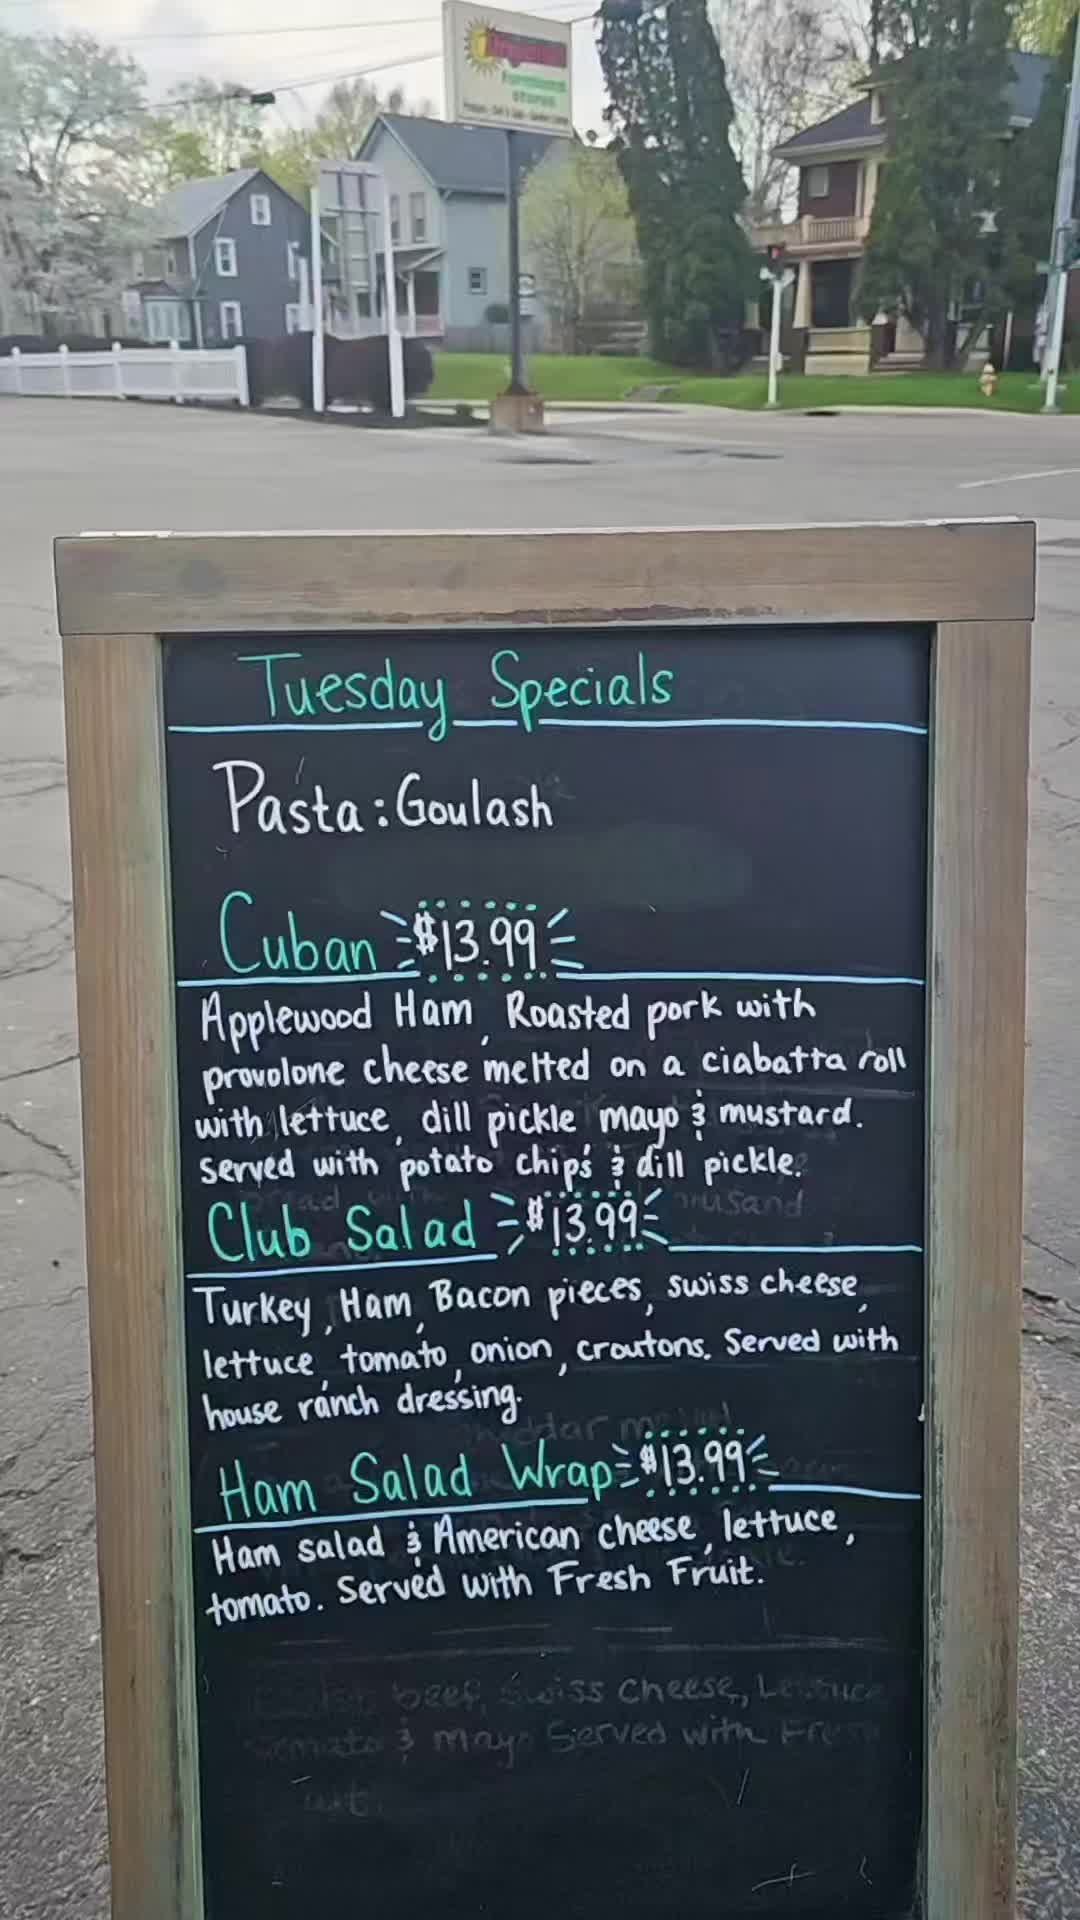 Tuesday Specials
Pasta: Goulash
Cuban $13.99
Applewood Ham, Roasted pork with
provolone cheese melted on a ciabatta roll
with lettuce, dill pickle mayo & mustard.
Served with potato chips & dill pickle.
Club Salad $13.99
Turkey, Ham, Bacon pieces, swiss cheese,
lettuce, tomato, onion, croutons. Served with
house ranch dressing.
Ham Salad Wrap $13.99
Ham salad & American cheese, lettuce,
tomato. Served with Fresh Fruit.
beef, Swiss cheese, Lettuce
& mayo Served with